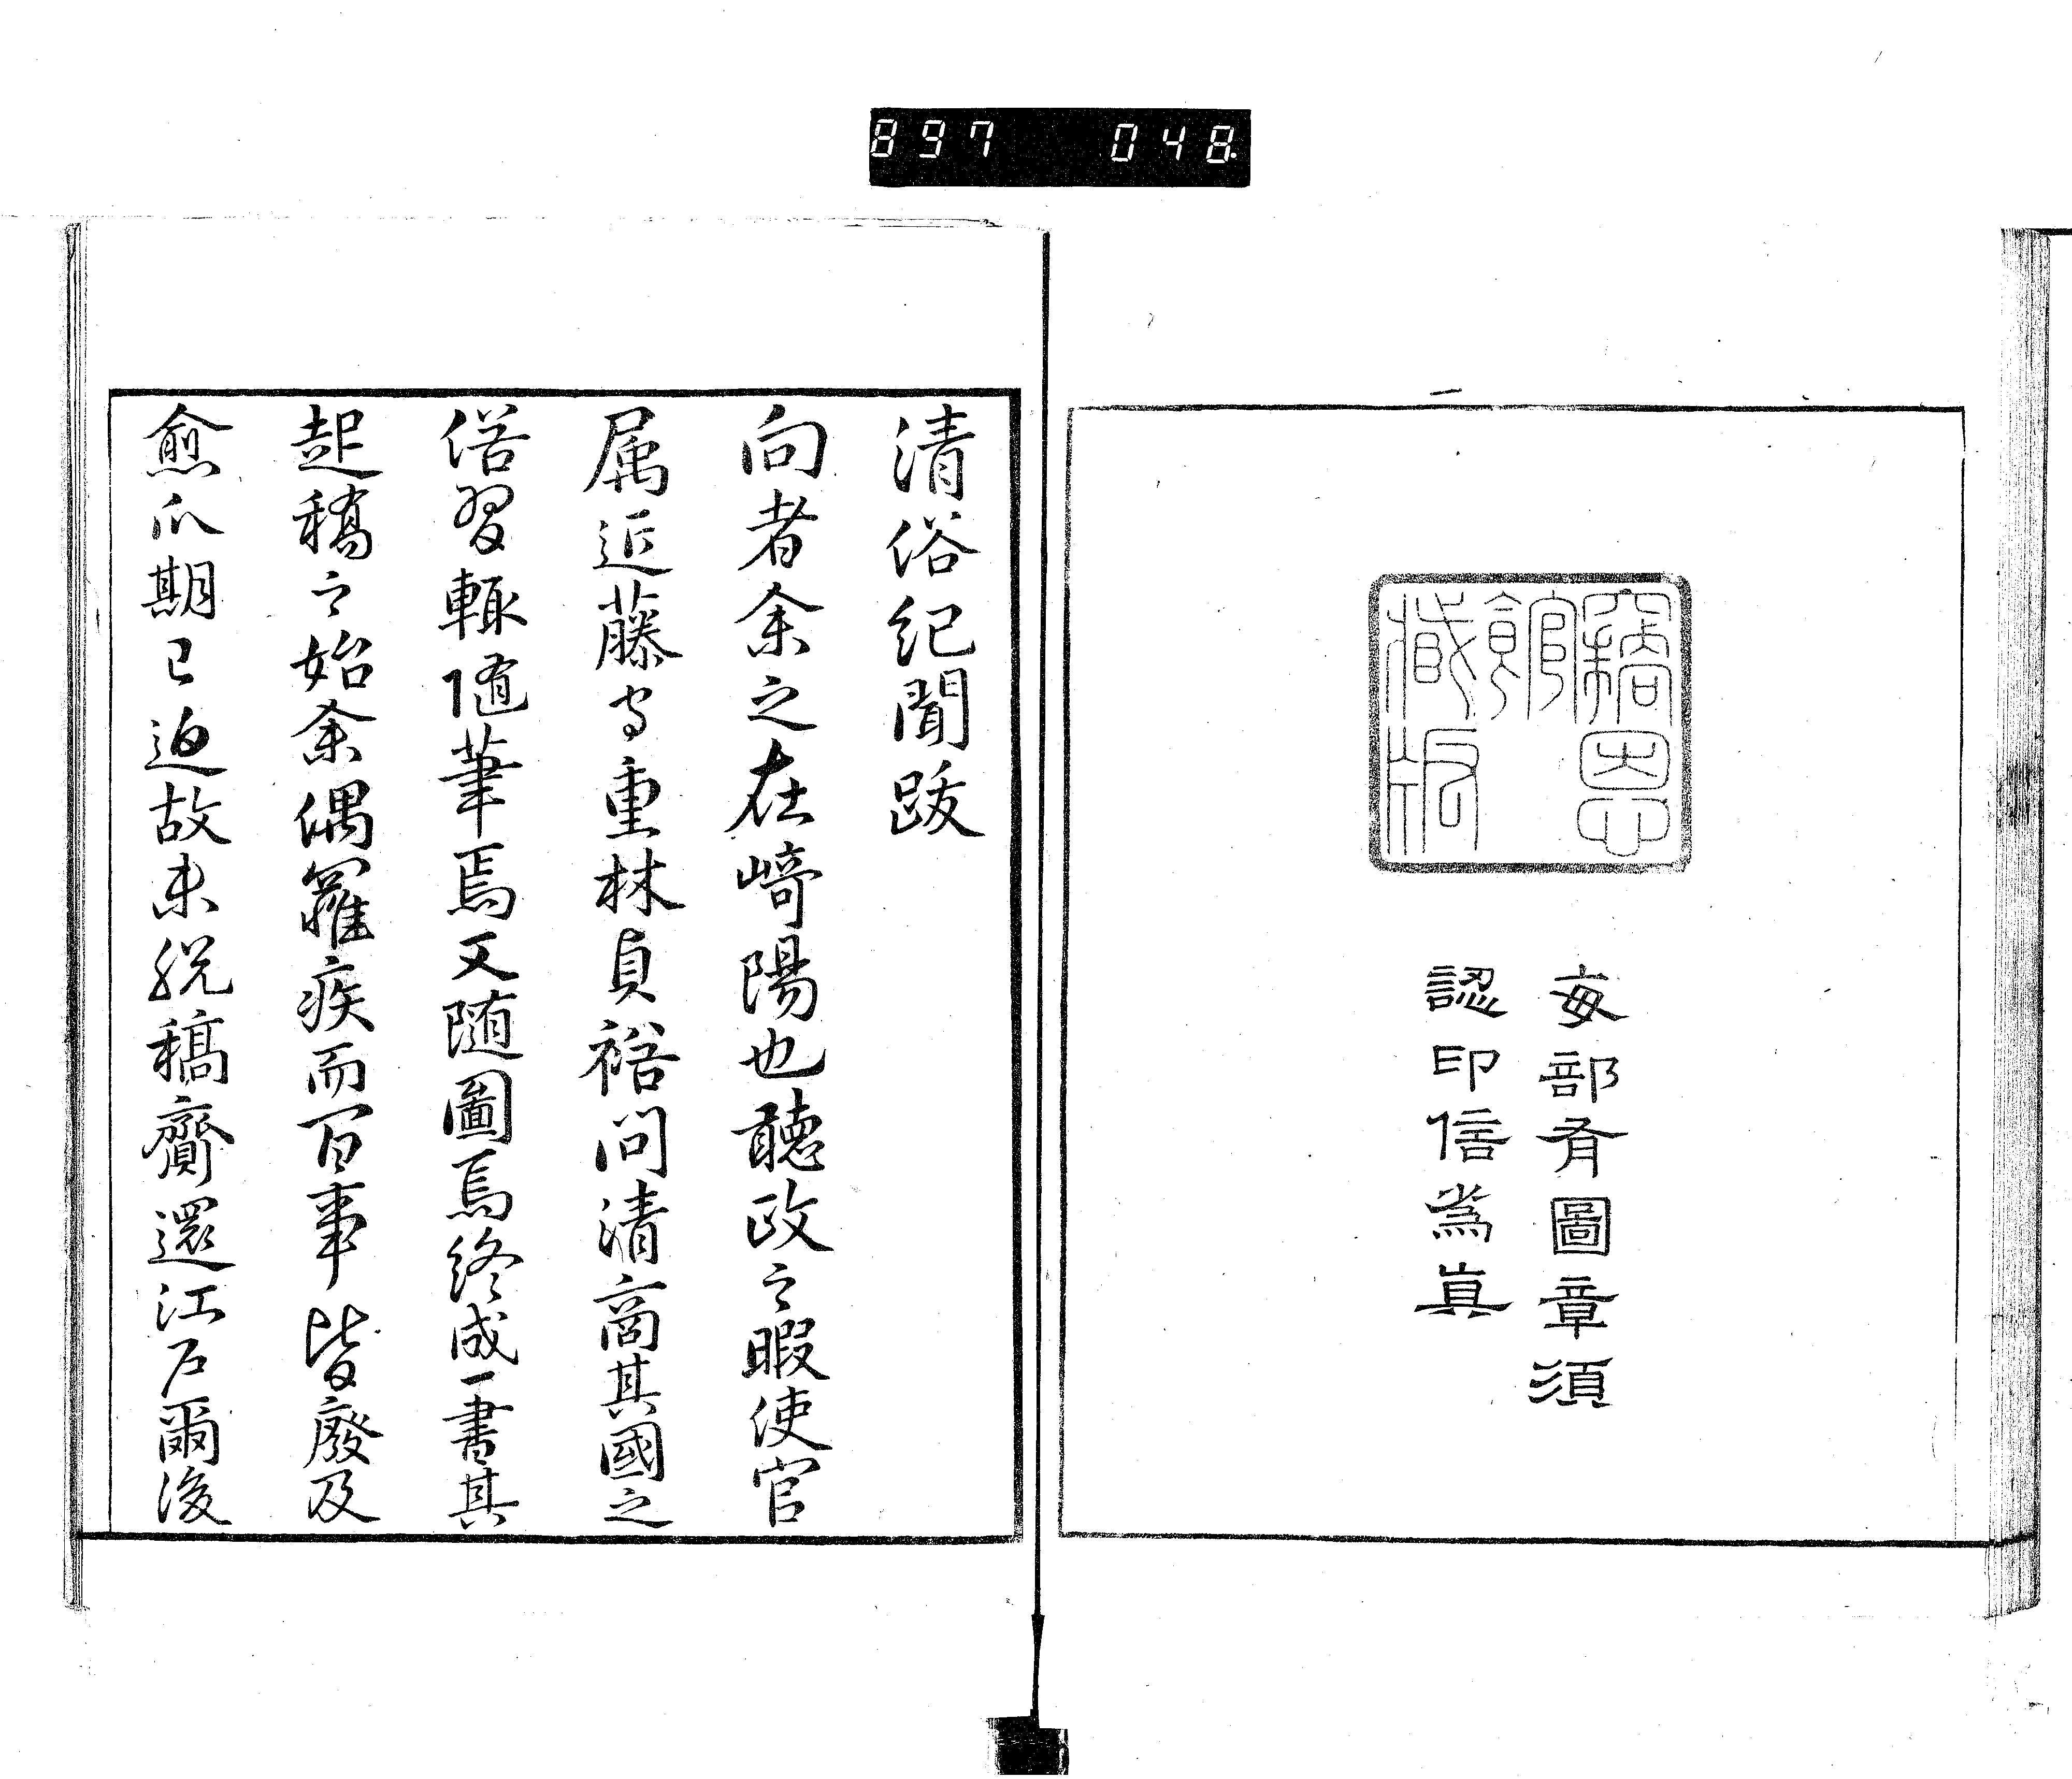 897 048
恩
館
藏版
每部有圖章須
認印信為真
清俗紀聞跋
向者余之在崎陽也聽政之暇使官
属近藤守重林貞裕問清商其國之
俗習輙隨筆焉又随圖焉終成一書其
起稿之始余偶羅疾而百事皆廢及
愈瓜期已迫故未脱稿齎還江戸爾後